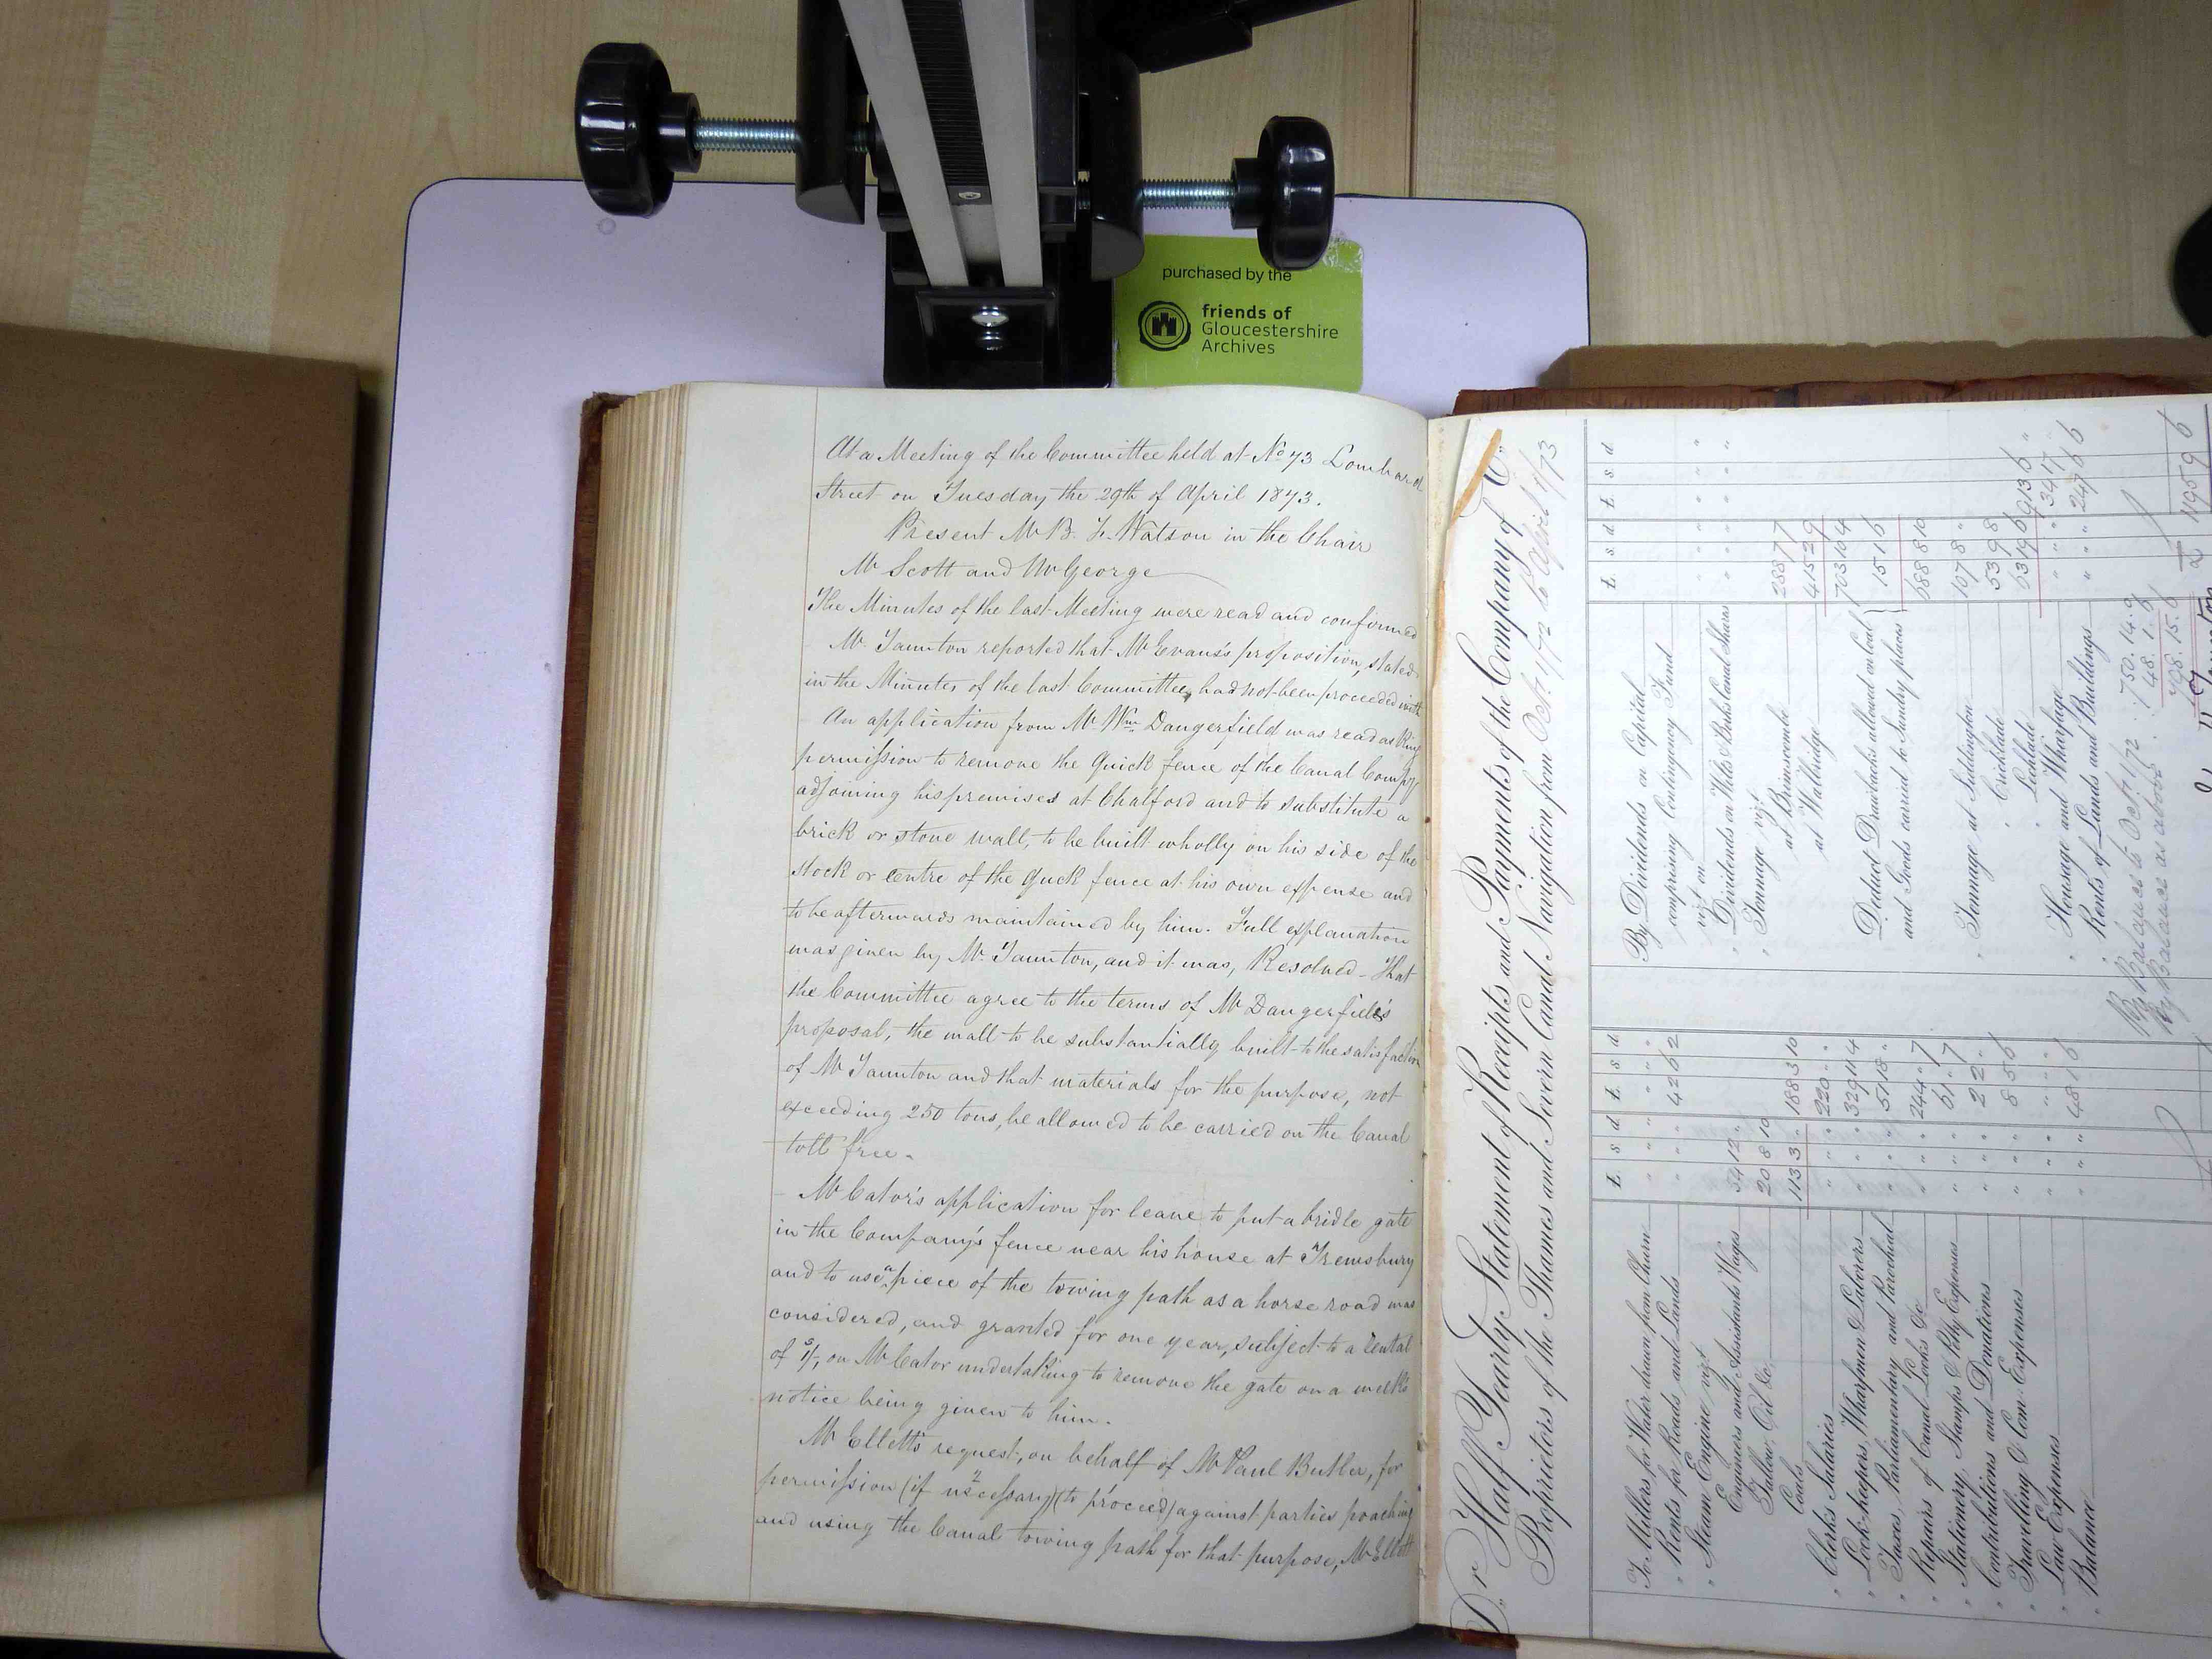 purchased by the
friends of
Gloucestershire
Archives
At a Meeting of the Committee held at No 73 Lombard
Street on Tuesday the 29th of April 1873.
Present Mr B. F. Watson in the Chair
Mr Scott and Mr George
The Minutes of the last Meeting were read and confirmed
Mr. Taunton reported that Mr Evans's proposition, stated
in the Minutes of the last Committee, had not been proceeded with
An application from Mr. Wm. Dangerfield was read asking
permission to remove the Quick fence of the Canal Compy
adjoining his premises at Chalford and to substitute a
brick or stone wall, to be built wholly on his side of the
stock or centre of the Quick fence at his own expense and
to be afterwards maintained by him. Full explanation
was given by Mr. Taunton, and it was, Resolved - That
the Committee agree to the terms of Mr Dangerfield's
proposal, the wall to be substantially built to the satisfaction
of Mr Taunton and that materials for the purpose, not
exceeding 250 tons, be allowed to be carried on the Canal
toll free.
Mr Cator's application for leave to put a bridle gate
in the Company's fence near his house at Trewsbury
and to use a piece of the towing path as a horse road was
considered, and granted for one year, subject to a rental
of 5/-, on Mr Cator undertaking to remove the gate on a week's
notice being given to him.
Mr Ellett's request, on behalf of Mr Paul Butler, for
permission (if necessary) (to proceed) against parties poaching
and using the Canal towing path for that purpose, Mr Ellett
Dr Half Yearly Statement of Receipts and Payments of the Company of
Proprietors of the Thames and Severn Canal Navigation from Oct 1/72 to April 1/73
£. s. d £. s. d
To Millers for Water drawn from Churn " " " " " "
" Rents for Roads and Lands " " " 42 6 2
" Steam Engine vizt
Engineers and Assistants Wages 54 12 "
Tallow Oil &c 20 8 10
Coals 113 3 " 188 3 10
" Clerks Salaries " " " 220 " "
" Lock-keepers, Wharfmen & Laborers " " " 329 14 4
" Taxes, Parliamentary and Parochial " " " 51 18 "
" Repairs of Canal, Locks &c " " " 244 " 7
" Stationery, Stamps & Petty Expenses " " " 61 " 7
" Contributions and Donations " " " 2 2 "
" Travelling & Com: Expenses " " " 8 5 6
" Law Expenses " " " " " "
" Balance " " " 48 1 6
£. s. d £. s. d
By Dividends on Capital
comprising Contingency Fund
vizt on " " " " " "
" Dividends on Wilts & Berks Canal Shares " " " " " "
" Tonnage vizt
at Brimscombe 288 7 7
at Wallbridge 415 2 9
703 10 4
Deduct Drawbacks allowed on Coal
and Goods carried to Sundry places 15 1 6
688 8 10
" Tonnage at Siddington 107 8 "
" Cricklade 53 9 8
" Lechlade 63 19 6 913 6 "
" Housage and Wharfage " " " 34 17 "
" Rents of Lands and Buildings " " " 247 6 6
By Balance to Oct 1/72 : 750. 14. 9
By Balance as above 48. 1. 6
798. 15. 6
£ 1195 9 6